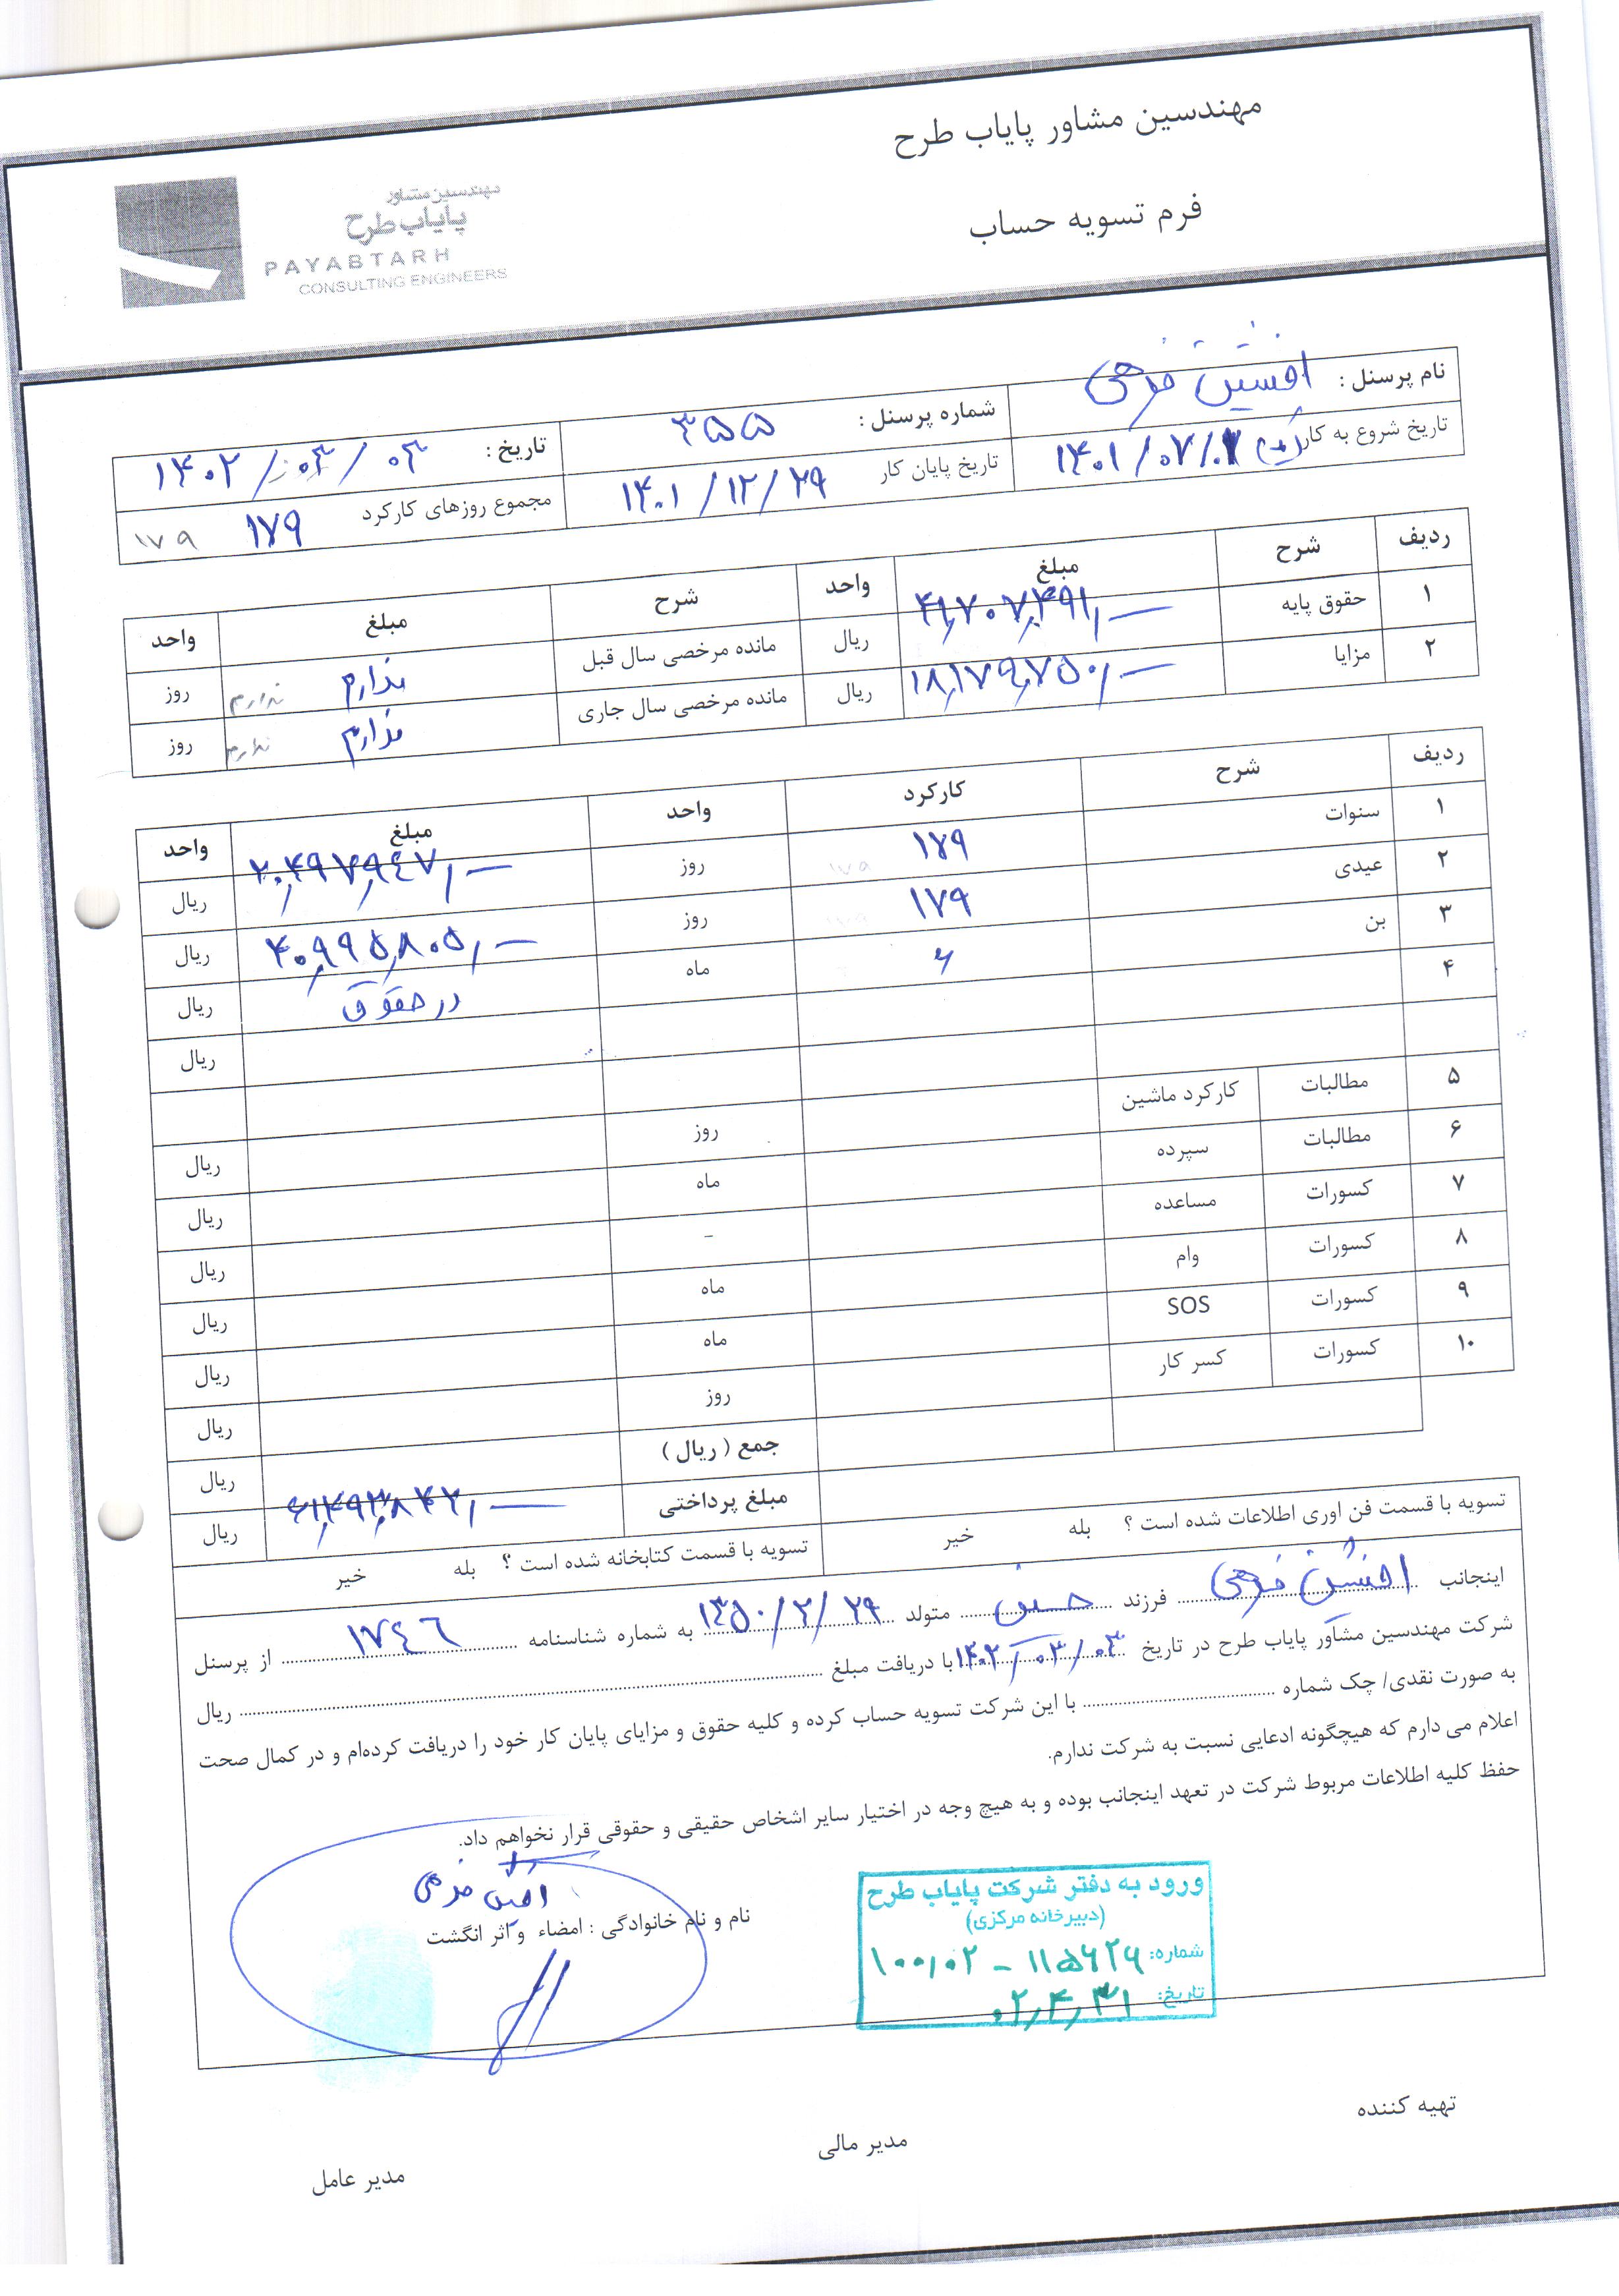 مهندسین مشاور پایاب طرح
فرم تسویه حساب
مهندسین مشاور
پایاب طرح
PAYABTARH
CONSULTING ENGINEERS
نام پرسنل : افشین فرهی شماره پرسنل : ۳۵۵ تاریخ : ۱۴۰۲/۰۳/۰۳
تاریخ شروع به کار ۱۴۰۱/۰۷/۰۱ تاریخ پایان کار ۱۴۰۱/۱۲/۲۹ مجموع روزهای کارکرد ۱۷۹ ۱۷۹
ردیف شرح مبلغ واحد شرح مبلغ واحد
۱ حقوق پایه ۴۱,۷۰۷,۴۹۱,- ریال مانده مرخصی سال قبل ندارم ندارم روز
۲ مزایا ۱۸,۱۷۹,۷۵۰,- ریال مانده مرخصی سال جاری ندارم ندارم روز
ردیف شرح کارکرد واحد مبلغ واحد
۱ سنوات ۱۷۹ ۱۷۹ روز ۲۰,۴۹۷,۹۴۷,- ریال
۲ عیدی ۱۷۹ ۱۷۹ روز ۴۰,۹۹۵,۸۰۵,- ریال
۳ بن ۶ ماه در حقوق ریال
۴ ریال
۵ مطالبات کارکرد ماشین روز ریال
۶ مطالبات سپرده ماه ریال
۷ کسورات مساعده - ریال
۸ کسورات وام ماه ریال
۹ کسورات SOS ماه ریال
۱۰ کسورات کسر کار روز ریال
جمع ( ریال ) ریال
مبلغ پرداختی ۶۱,۴۹۳,۸۴۲,- ریال
تسویه با قسمت فن اوری اطلاعات شده است ؟ بله خیر تسویه با قسمت کتابخانه شده است ؟ بله خیر
اینجانب افشین فرهی فرزند حسن متولد ۱۳۵۰/۲/۲۹ به شماره شناسنامه ۱۷۴۶ از پرسنل
شرکت مهندسین مشاور پایاب طرح در تاریخ ۱۴۰۲/۰۳/۰۳ با دریافت مبلغ ........ ریال
به صورت نقدی/ چک شماره ........ با این شرکت تسویه حساب کرده و کلیه حقوق و مزایای پایان کار خود را دریافت کرده‌ام و در کمال صحت
اعلام می دارم که هیچگونه ادعایی نسبت به شرکت ندارم.
حفظ کلیه اطلاعات مربوط شرکت در تعهد اینجانب بوده و به هیچ وجه در اختیار سایر اشخاص حقیقی و حقوقی قرار نخواهم داد.
افشین فرهی
نام و نام خانوادگی : امضاء و اثر انگشت
ورود به دفتر شرکت پایاب طرح
(دبیرخانه مرکزی)
شماره: ۱۰۰,۰۲ - ۱۱۵۶۲۹
تاریخ: ۰۲,۴,۳۱
تهیه کننده
مدیر مالی
مدیر عامل